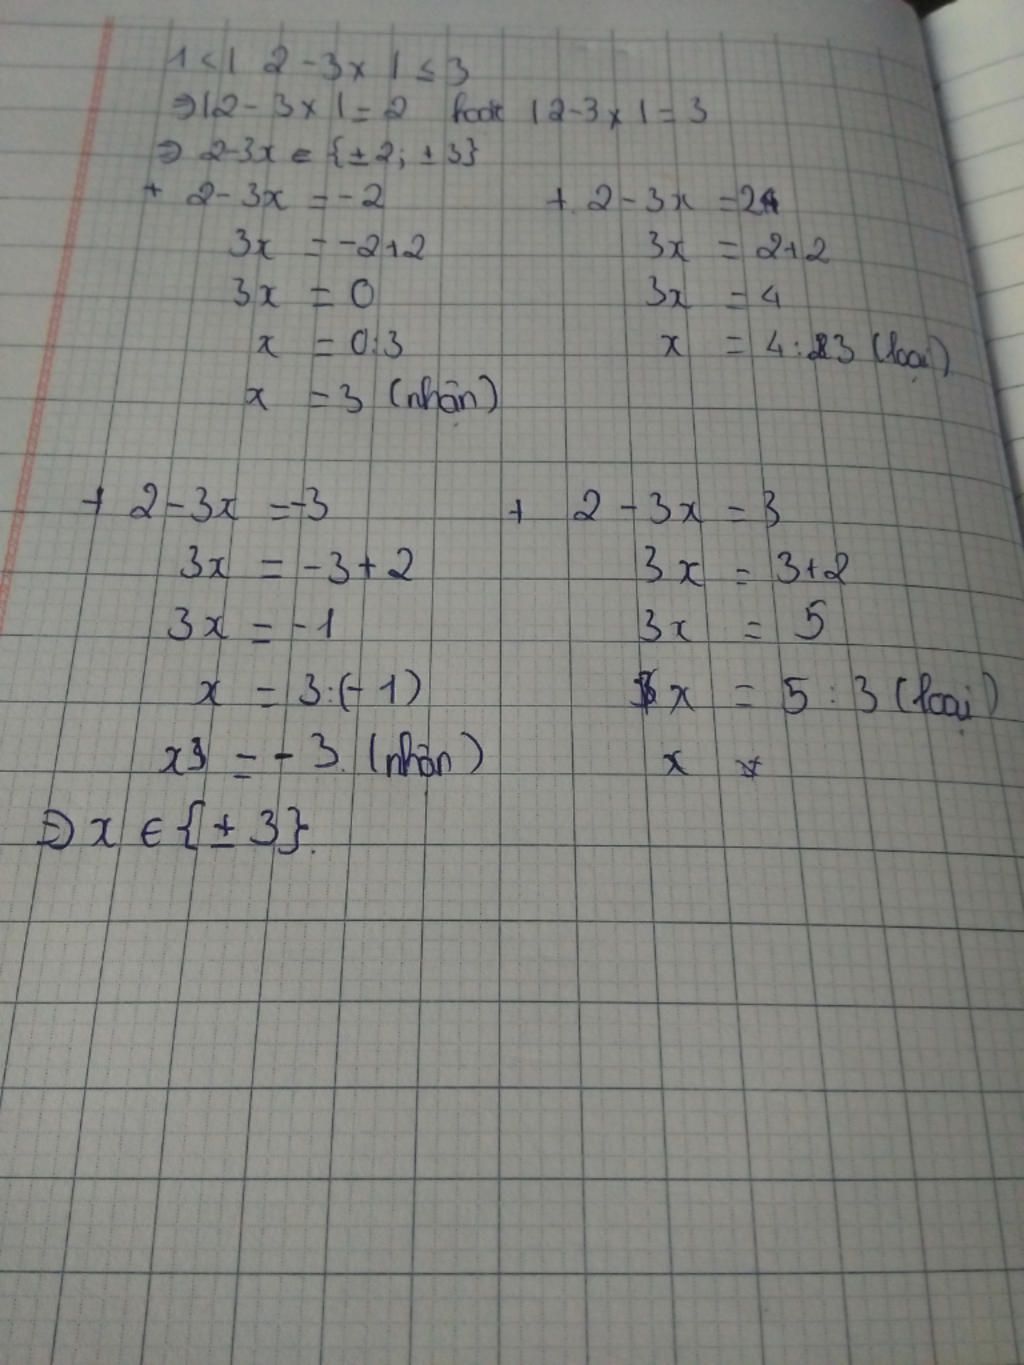 1 < | 2 - 3x | ≤ 3
⇒ | 2 - 3x | = 2 hoặc | 2 - 3x | = 3
⇒ 2-3x ∈ {±2; ±3}
+ 2-3x = -2 + 2-3x = 2
3x = -2+2 3x = 2+2
3x = 0 3x = 4
x = 0:3 x = 4:3 (loại)
x = 3 (nhận)
+ 2-3x = -3 + 2-3x = 3
3x = -3+2 3x = 3+2
3x = -1 3x = 5
x = 3:(-1) x = 5:3 (loại)
x = -3 (nhận) x
⇒ x ∈ {±3}.